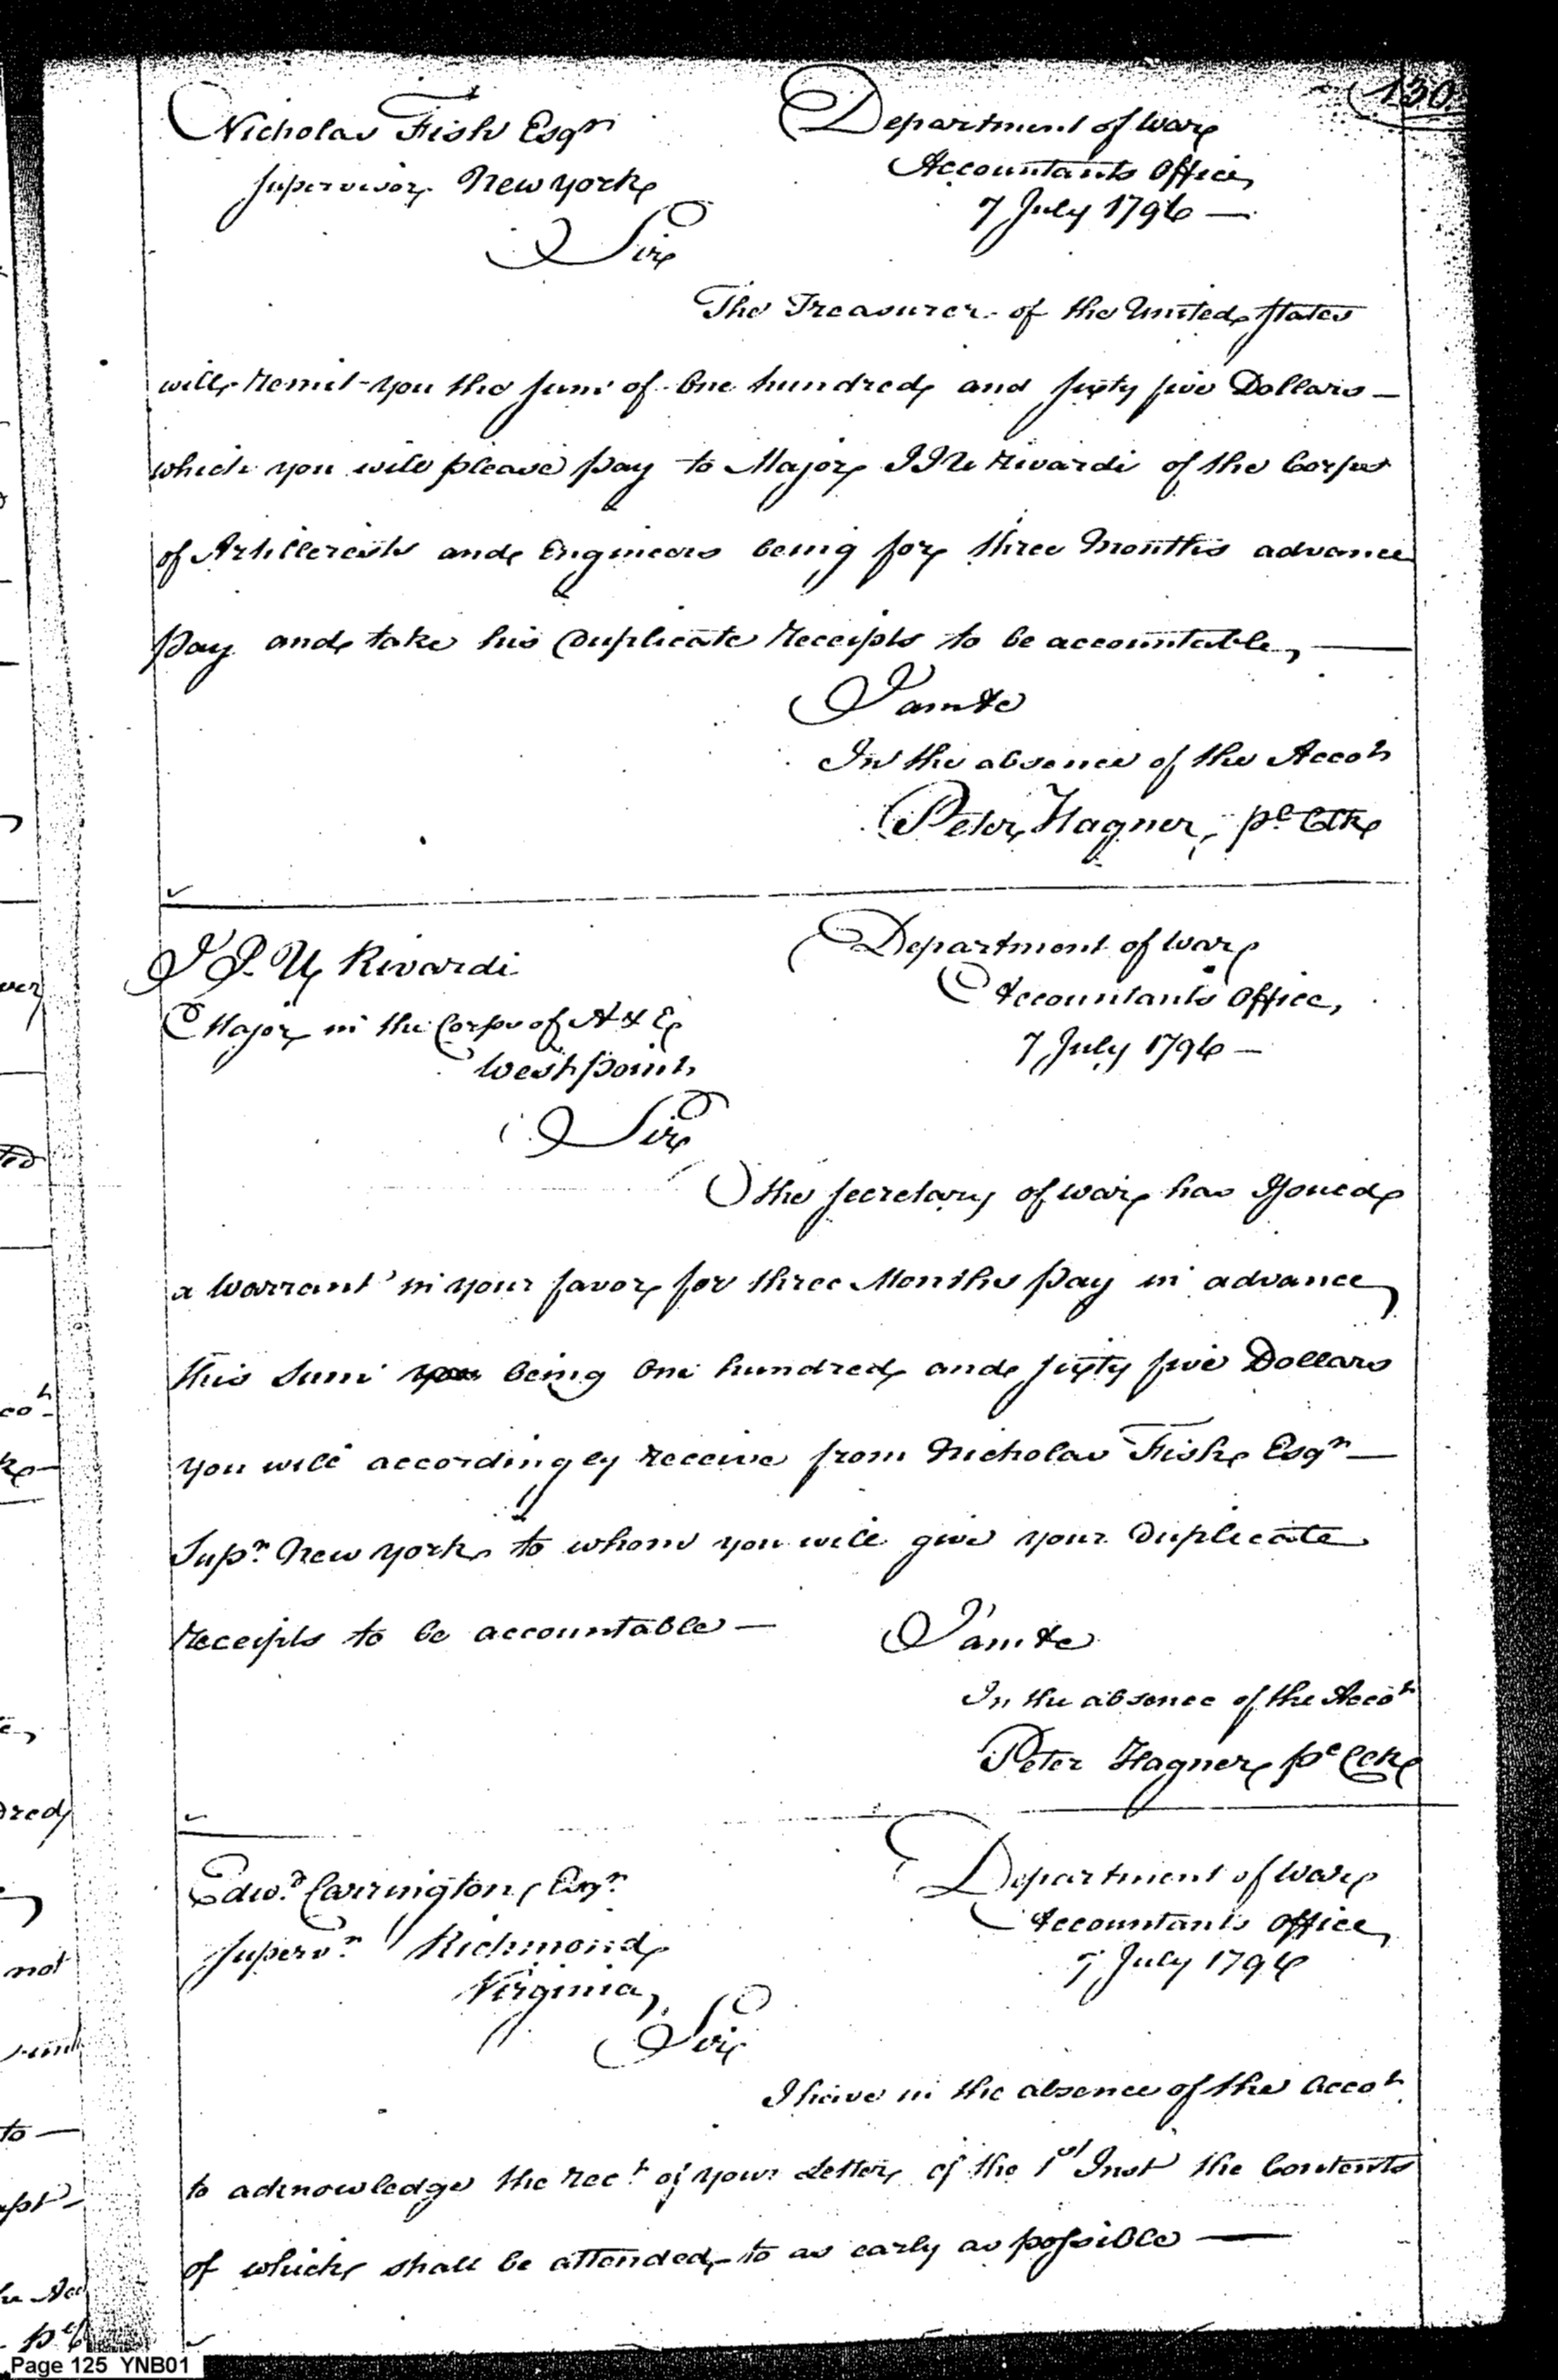 130
Nicholas Fish Esqr
Supervisor New York
Department of War
Accountants Office
7 July 1796 —
Sir
The Treasurer of the United States
will remit you the sum of One hundred and sixty five Dollars —
which you will please pay to Major J J U Rivardi of the Corps
of Artillerists and Engineers being for three Months advance
pay and take his Duplicate receipts to be accountable, —
I am &c
In the absence of the Accot
Peter Hagner, pl Clk
J J. U Rivardi
Major in the Corps of A & E
West point
Department of War
Accountants Office,
7 July 1796 —
Sir
The Secretary of War has Issued
a Warrant in your favor for three Months pay in advance
this sum you being One hundred and sixty five Dollars
you will accordingly receive from Nicholas Fish Esqr —
Supr New York to whom you will give your Duplicate
receipts to be accountable —
I am &c
In the absence of the Accot
Peter Hagner pl Clk
Edwd Carrington, Esqr
Superv.r Richmond
Virginia,
Department of War
Accountants Office,
7 July 1796
Sir
I have in the absence of the Accot
to acknowledge the rect of your Letter of the 1st Inst the Contents
of which shall be attended to as early as possible —
Page 125 YNB01